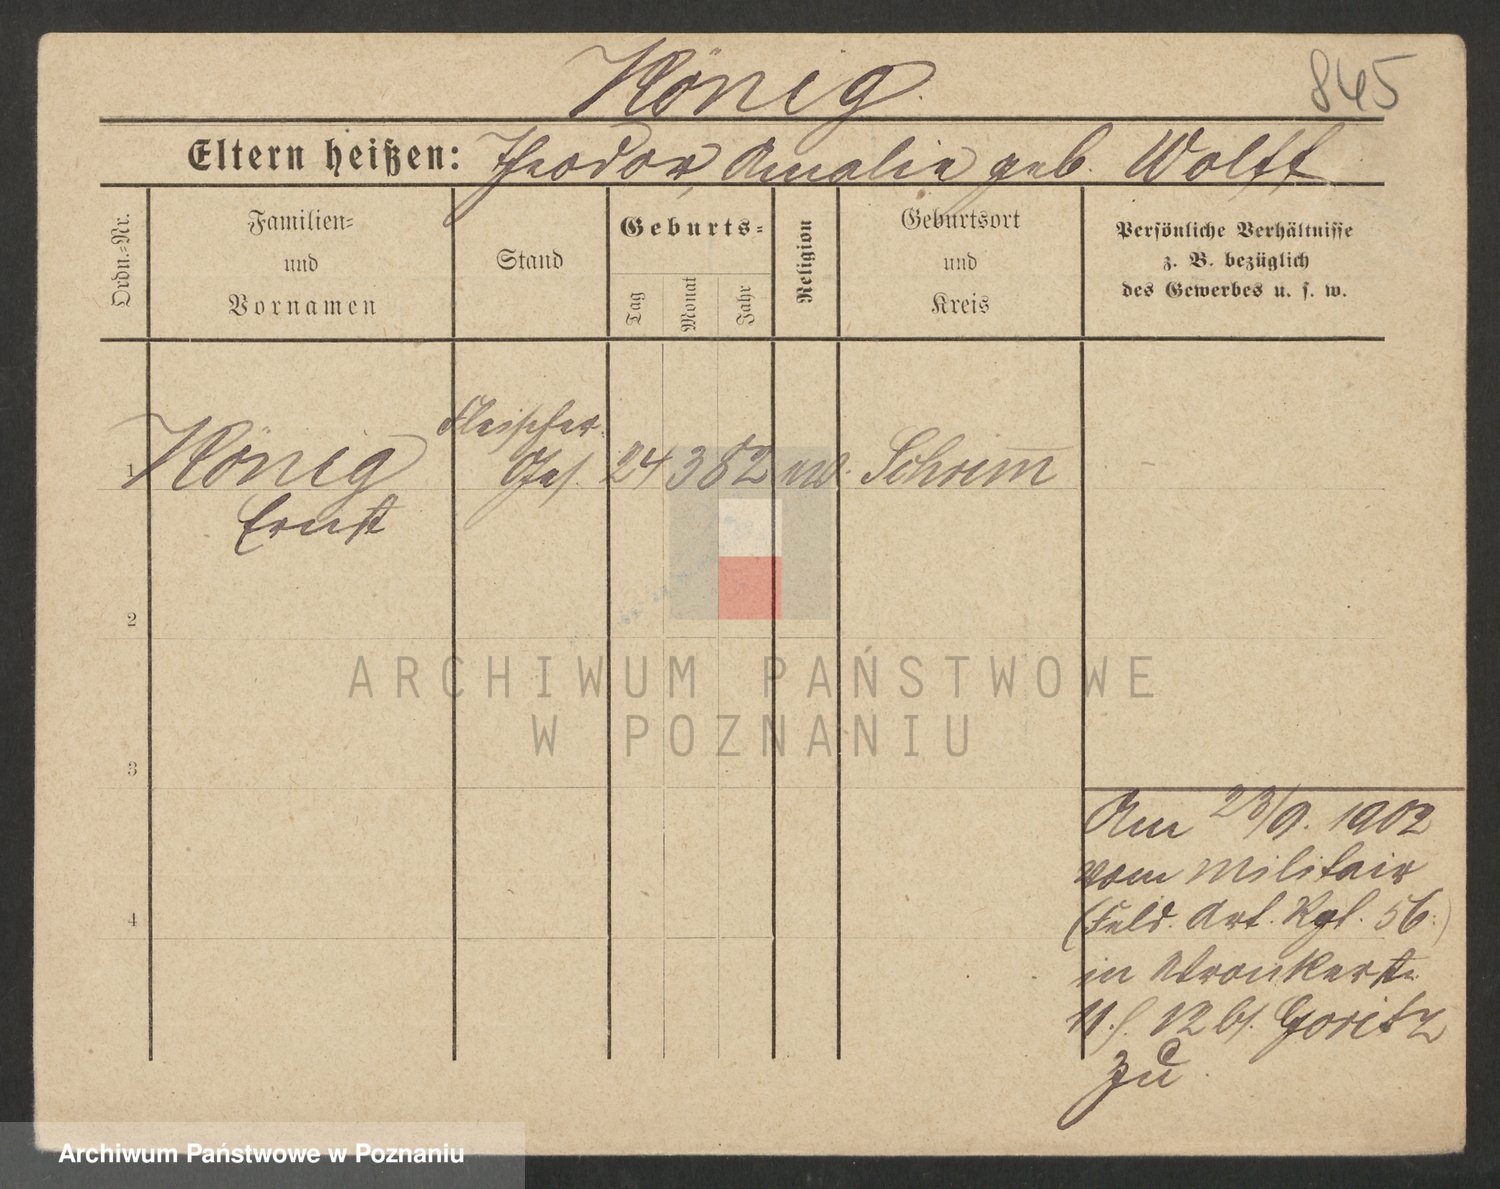 König.
845
Eltern heißen: Theodor, Amalie geb. Wolff
Ordn.-Nr.
Familien-
und
Vornamen
Stand
Geburts-
Tag
Monat
Jahr
Religion
Geburtsort
und
Kreis
Persönliche Verhältnisse
z. B. bezüglich
des Gewerbes u. s. w.
1
König
Ernst
Fleischer
Ges.
24 3 82
Schrimm
2
3
4
Am 23/9. 1902
vom Militair
(Feld. Art. Rgt. 56.)
in Wronkerstr.
12 bs. Goritz
zu.
ARCHIWUM PAŃSTWOWE
W POZNANIU
Archiwum Państwowe w Poznaniu